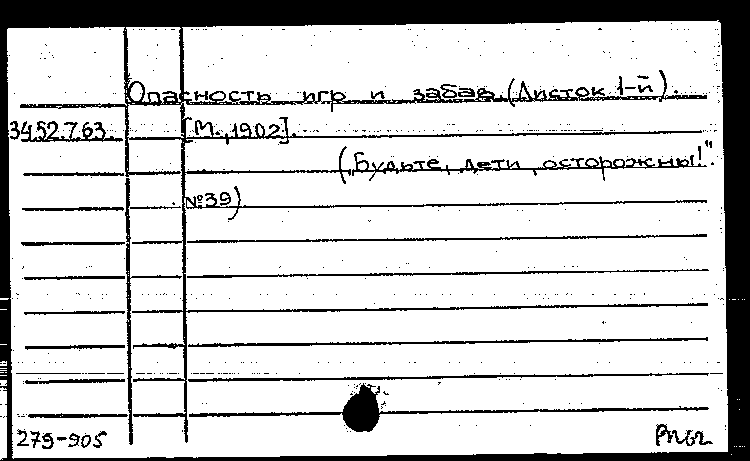 Опасность игр и забав. (Листок 1-й).
3452.763. [М., 1902].
(„Будьте, дети, осторожны!".
№39)
279-905